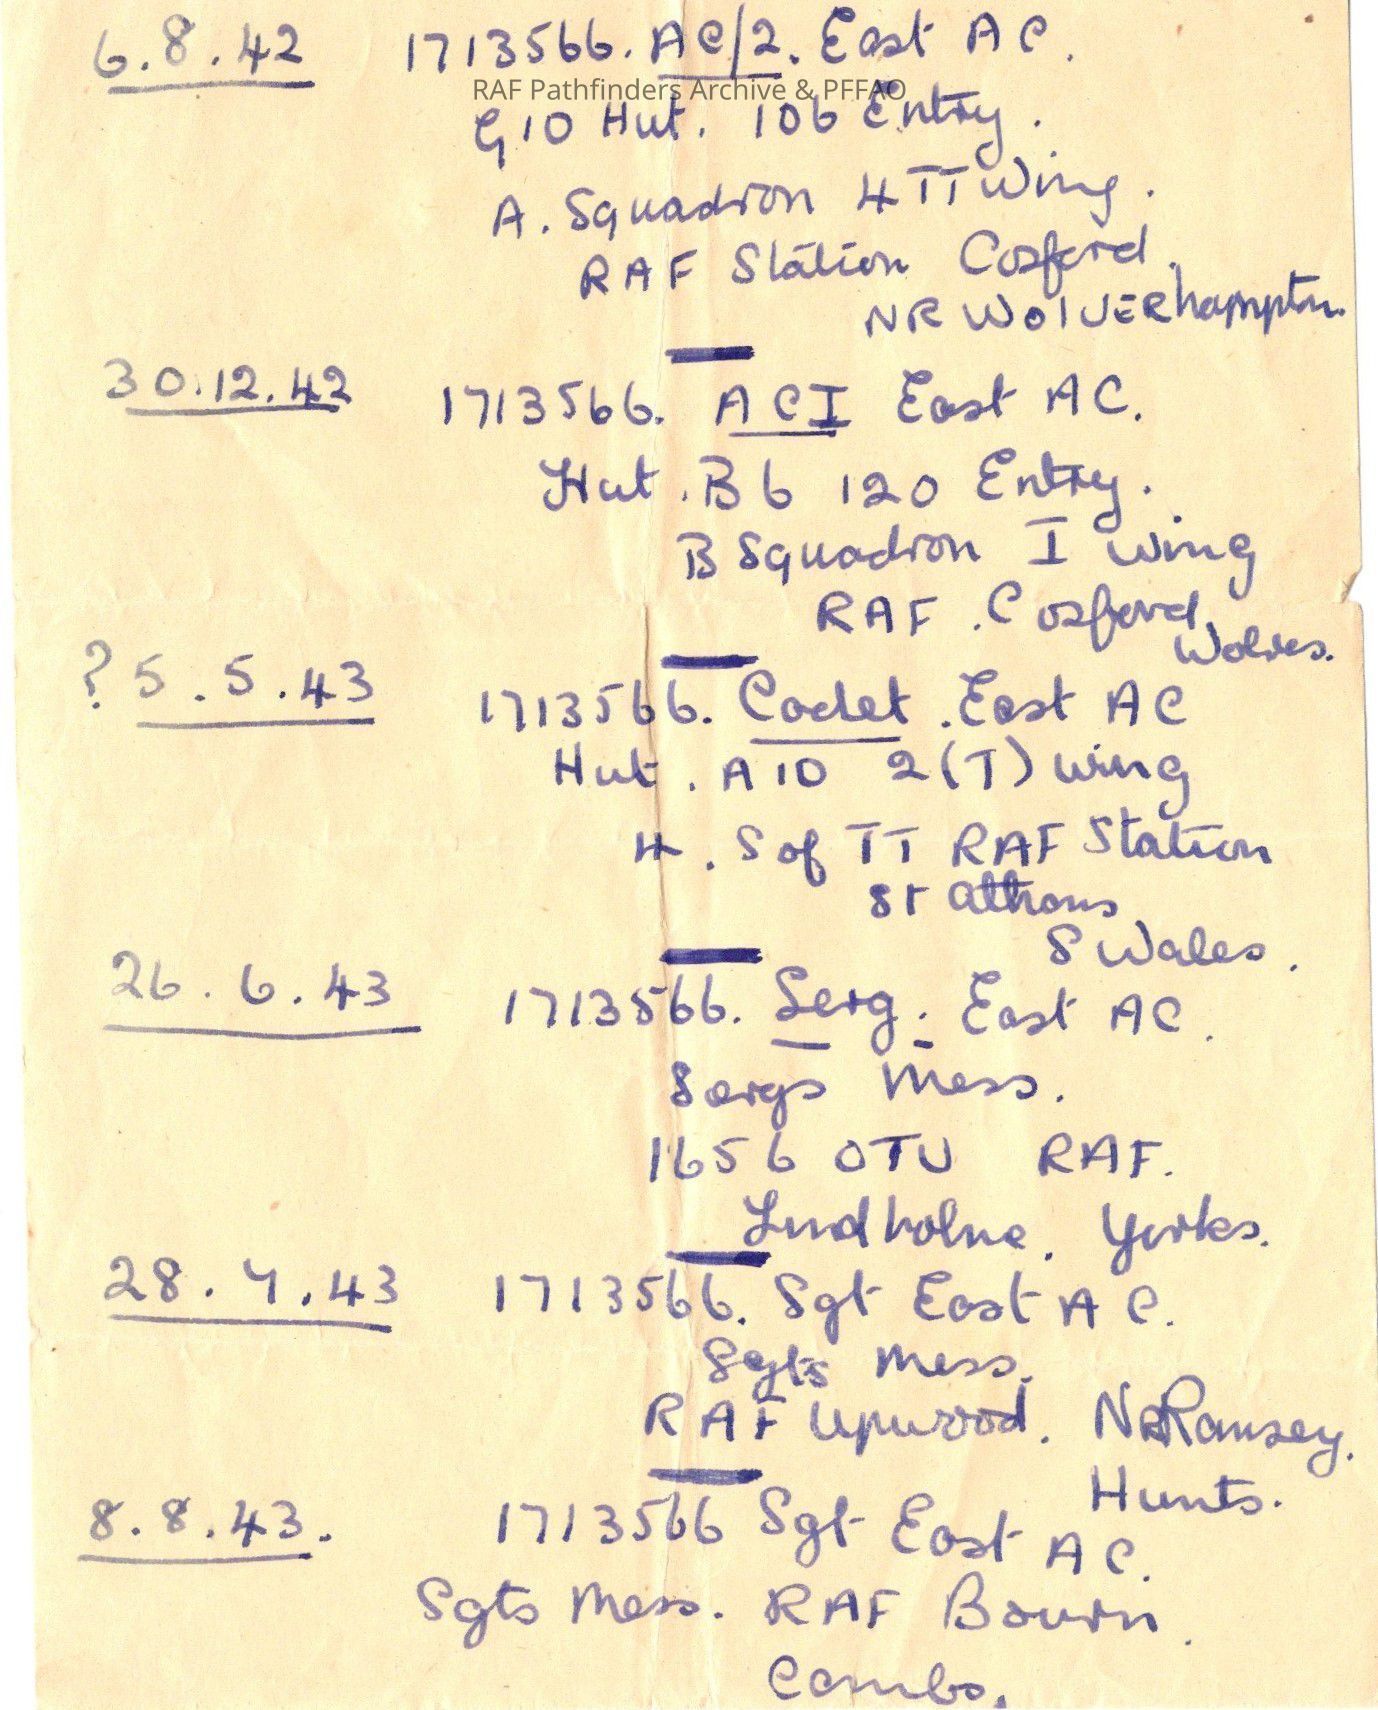 6.8.42 1713566. AC/2. East AC.
RAF Pathfinders Archive & PFFAO
G10 Hut. 106 Entry.
A. Squadron 4 TT Wing.
RAF Station Cosford.
NR WOlVERhampton.
30.12.42 1713566. ACI East AC.
Hut. B6 120 Entry.
B Squadron I Wing
RAF. Cosford.
Wolves.
? 5.5.43 1713566. Cadet. East AC
Hut. A10 2(T) Wing
4. S of TT RAF Station
St Athans
S Wales.
26.6.43 1713566. Serg. East AC.
Sergs Mess.
1656 OTU RAF.
Lindholme. Yorks.
28.7.43 1713566. Sgt East AC.
Sgts Mess.
RAF Upwood. NR Ramsey.
Hunts.
8.8.43. 1713566 Sgt East AC.
Sgts Mess. RAF Bourn.
Cambs.